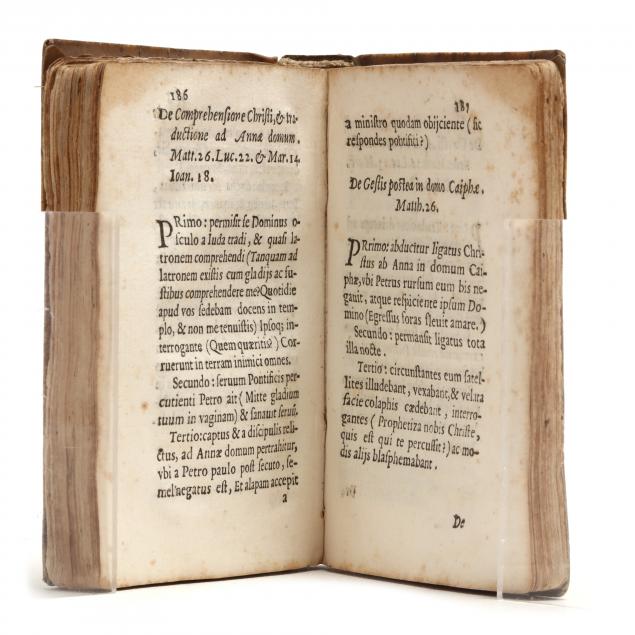 186
De Comprehensione Christi, & tra-
ductione ad Annæ domum.
Matt. 26. Luc. 22. & Mar. 14.
Ioan. 18.
PRimo: permisit se Dominus o-
sculo a Iuda tradi, & quasi la-
tronem comprehendi (Tanquam ad
latronem existis cum gladijs ac fu-
stibus comprehendere me? Quotidie
apud vos sedebam docens in tem-
plo, & non me tenuistis) Ipsoq; in-
terrogante (Quem quæritis?) Cor-
ruerunt in terram inimici omnes.
Secundo: seruum Pontificis per-
cutienti Petro ait (Mitte gladium
tuum in vaginam) & sanauit seruū.
Tertio: captus & a discipulis reli-
ctus, ad Annæ domum pertrahitur,
vbi a Petro paulo post secuto, se-
mel negatus est, Et alapam accepit
a
187
a ministro quodam obijciente (sic
respondes pontifici?)
De Gestis postea in domo Caiphæ.
Matth. 26.
PRrimo: abducitur ligatus Chri-
stus ab Anna in domum Cai-
phæ, vbi Petrus rursum eum bis ne-
gauit, atque respiciente ipsum Do-
mino (Egressus foras fleuit amare.)
Secundo: permansit ligatus tota
illa nocte.
Tertio: circunstantes eum satel-
lites illudebant, vexabant, & velata
facie colaphis cædebant, interro-
gantes (Prophetiza nobis Christe,
quis est qui te percussit?) ac mo-
dis alijs blasphemabant.
De